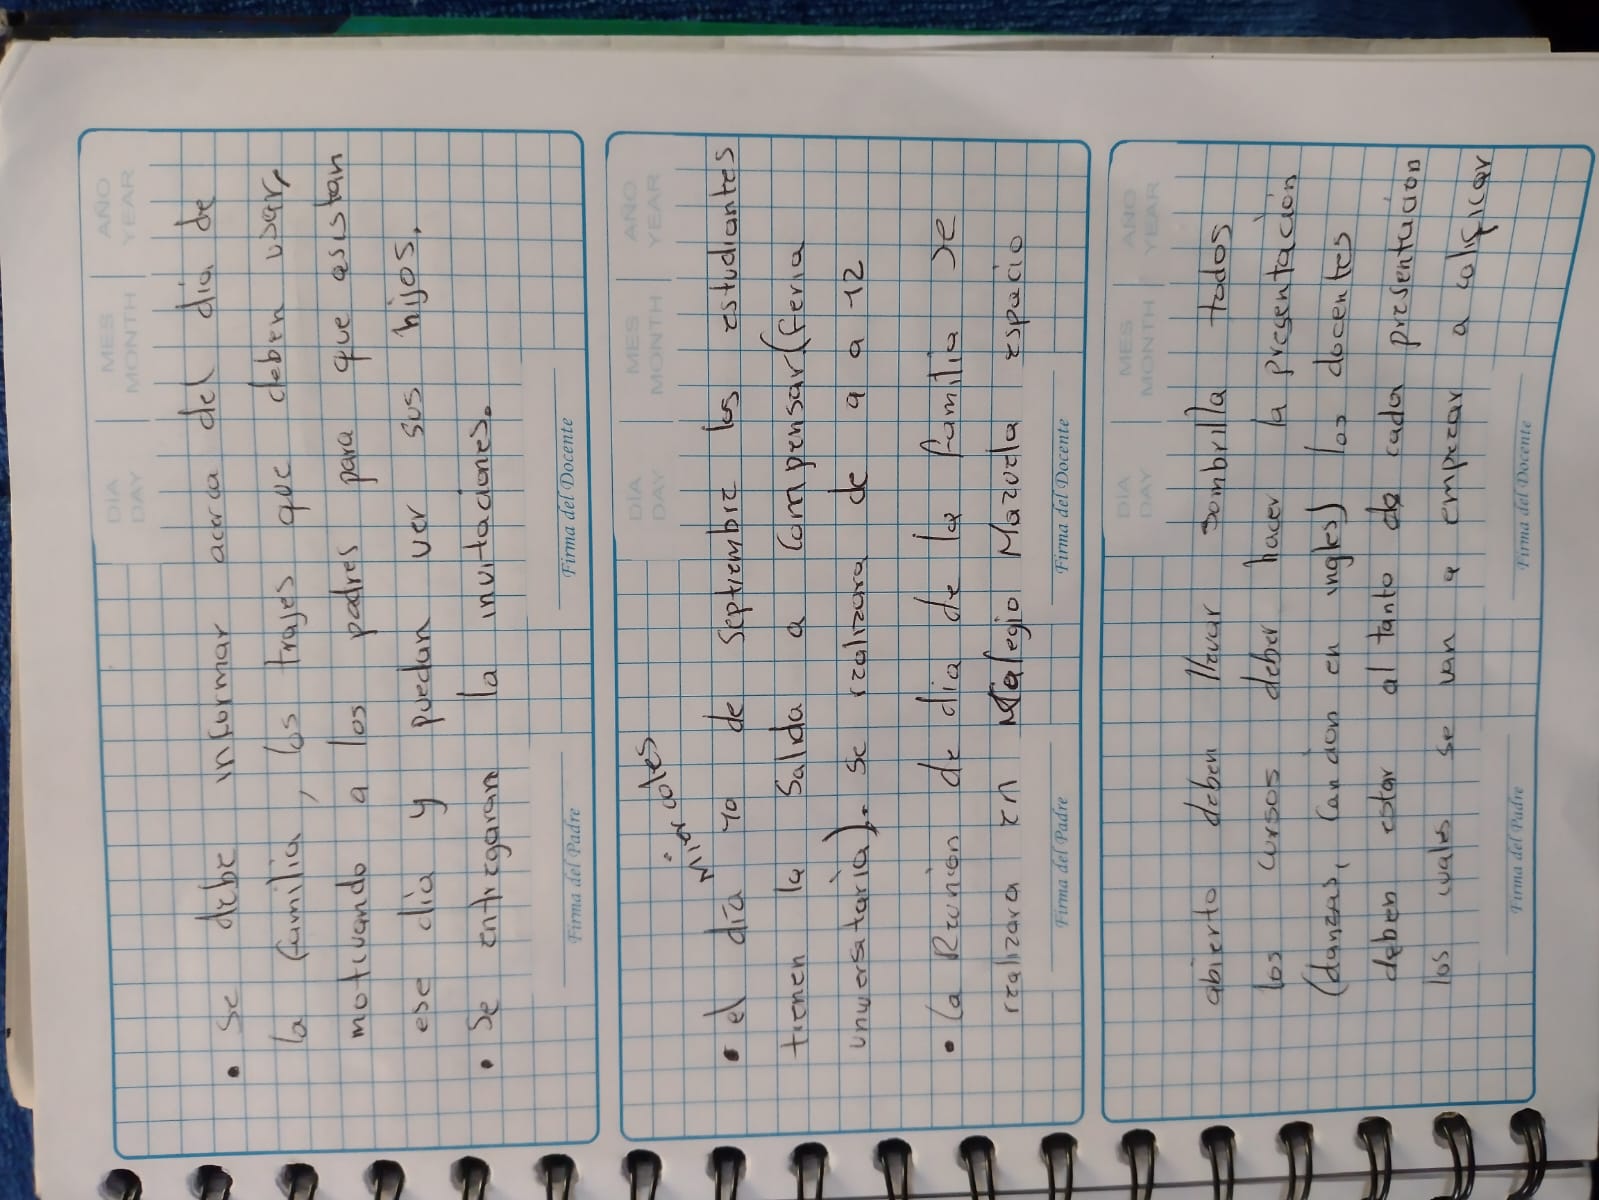 DÍA MES AÑO
DAY MONTH YEAR
• Se debe informar acerca del dia de
la familia, los trajes que deben usar,
motivando a los padres para que asistan
ese día y puedan ver sus hijos.
• Se entregaran la invitaciones.
Firma del Padre Firma del Docente
DÍA MES AÑO
DAY MONTH YEAR
Miercoles
• el día 10 de Septiembre los estudiantes
tienen la Salida a Compensar (feria
universataria). Se realizara de 9 a 12
• La Reunion de dia de la familia se
realizara en Colegio Mazuela espacio
Firma del Padre Firma del Docente
DÍA MES AÑO
DAY MONTH YEAR
abierto deben llevar sombrilla todos
los cursos deber hacer la presentación
(danzas, Canción en ingles) los docentes
deben estar al tanto de cada presentación
los cuales se van a empezar a calificar
Firma del Padre Firma del Docente